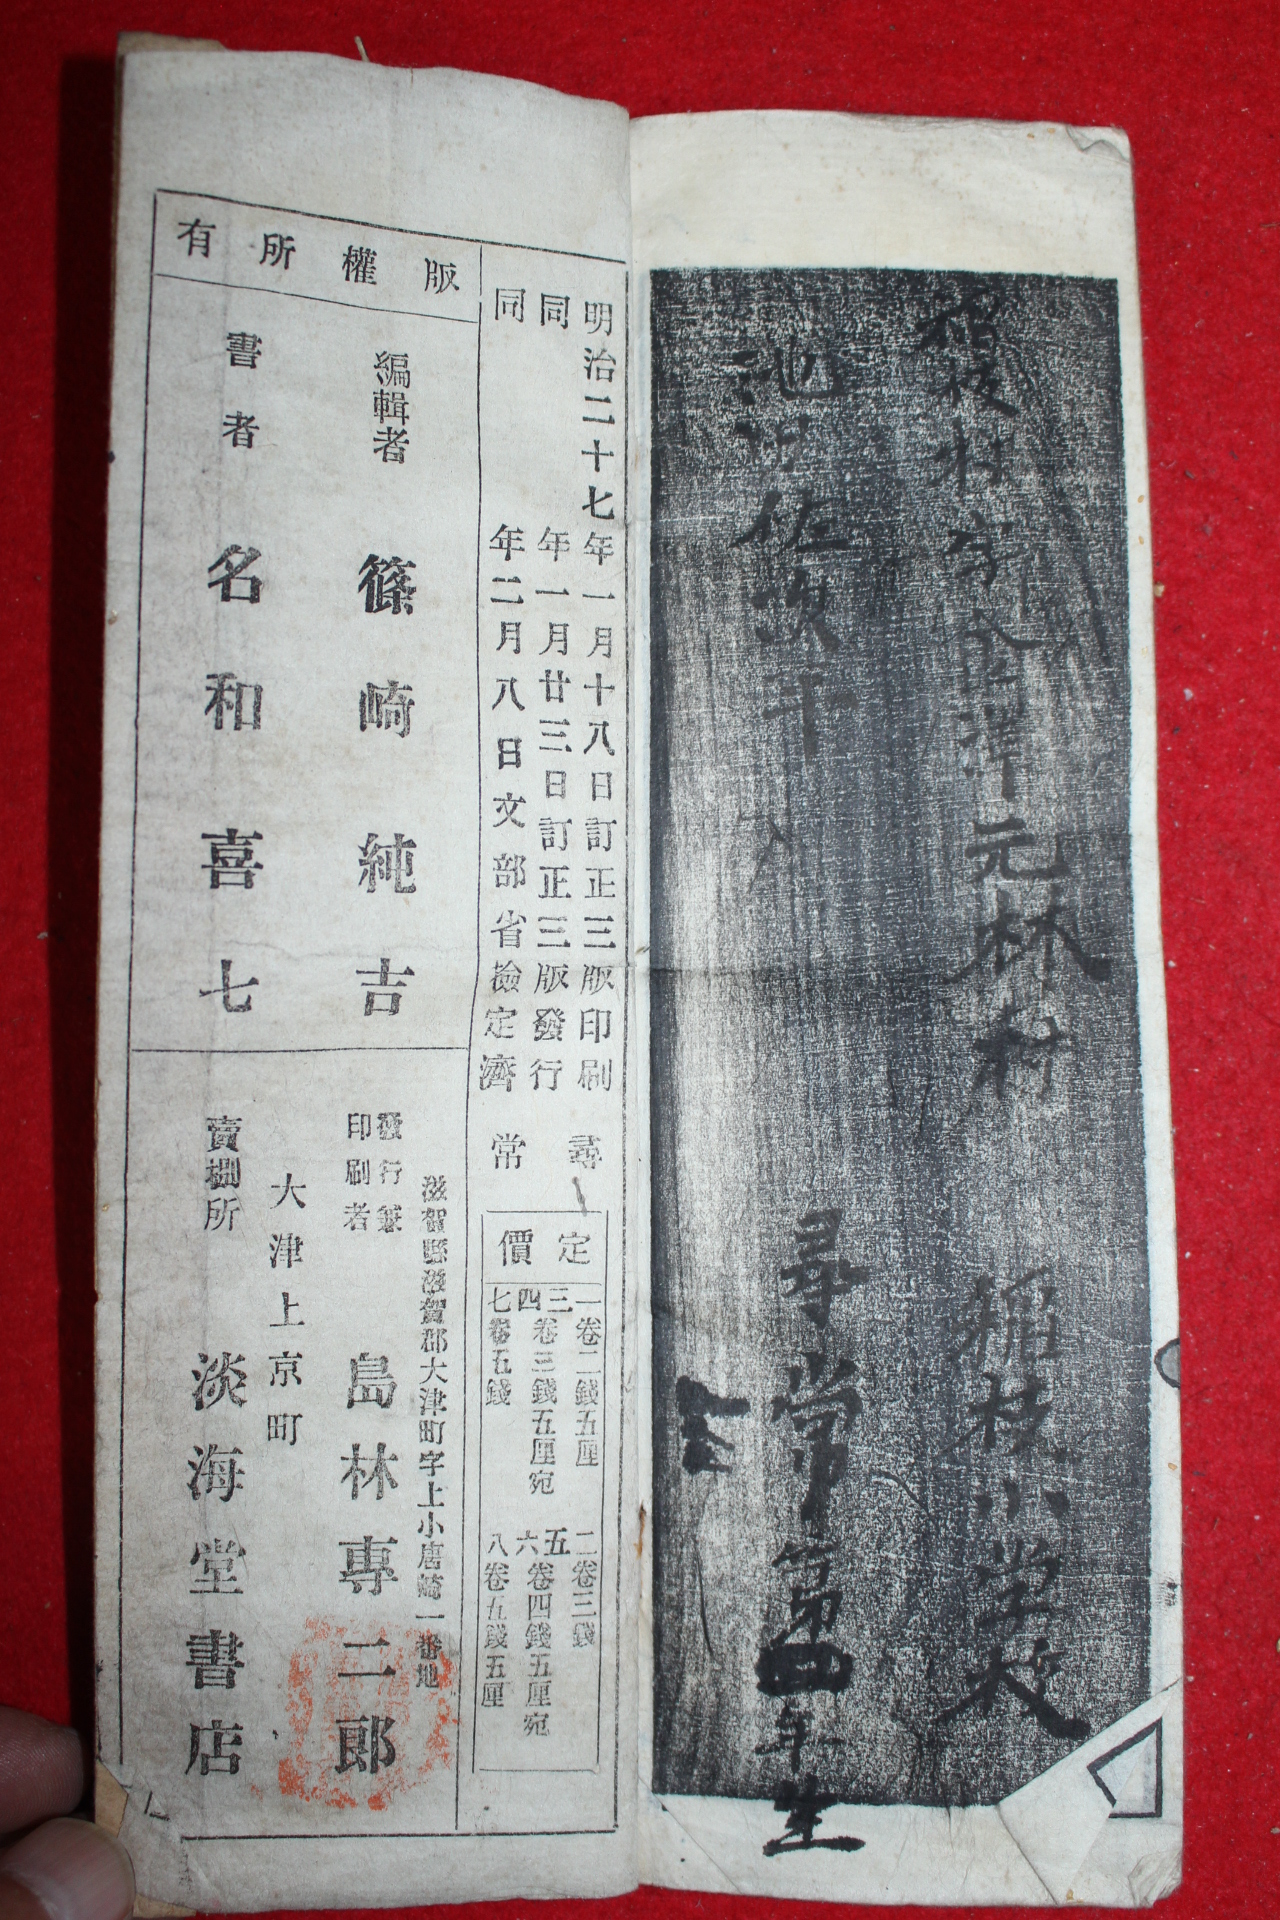 稲枝小学校
尋常第四年生
明治二十七年一月十八日訂正三版印刷
同年一月廿三日訂正三版發行
同年二月八日文部省檢定濟
尋常
定價
一卷二錢五厘
二卷三錢
三四卷三錢五厘宛
五六卷四錢五厘宛
七卷五錢
八卷五錢五厘
版權所有
編輯者 篠崎純吉
書者 名和喜七
滋賀縣滋賀郡大津町字上小唐崎一番地
發行兼印刷者 島林專二郎
大津上京町
賣捌所 淡海堂書店